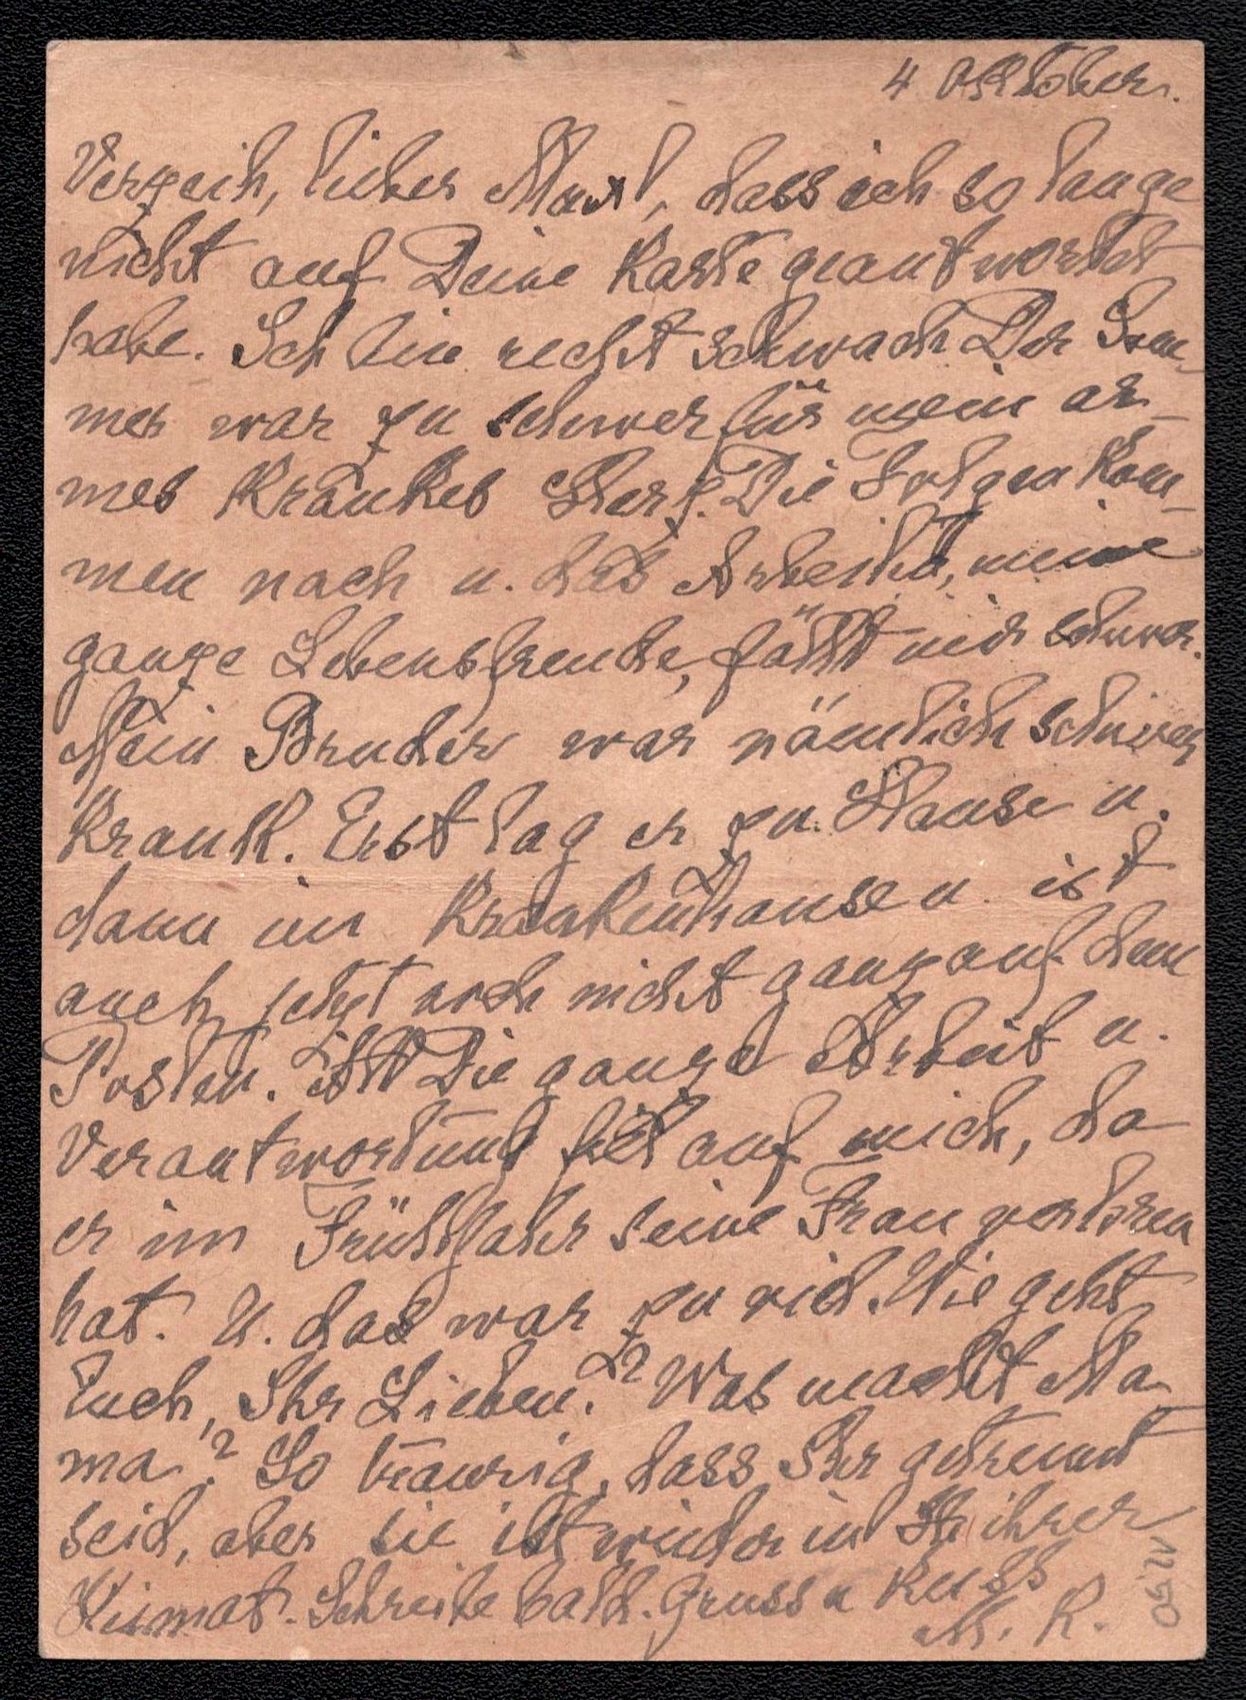 4 Oktober.
Verzeih, lieber Max!, dass ich so lange
nicht auf Deine Karte geantwortet
habe. Ich bin recht schwach Der Som-
mer war zu schwer für mein ar-
mes krankes Herz. Die Folgen kom-
men nach u. das Arbeiten, meine
ganze Lebensfreude, fällt mir schwer.
Mein Bruder war nämlich schwer
krank. Erst lag er zu Hause u.
dann im Krankenhause u. ist
auch jetzt noch nicht ganz auf dem
Posten. Die ganze Arbeit u.
Verantwortung fiel auf mich, da
er im Frühjahr seine Frau verloren
hat. U. das war zu viel. Wie geht
Euch, Ihr Lieben? Was macht Ma-
ma? So traurig, dass Ihr getrennt
seid, aber sie ist wieder in ihrer
Heimat. Schreibe bald. Gruss u Kuss
M. K.